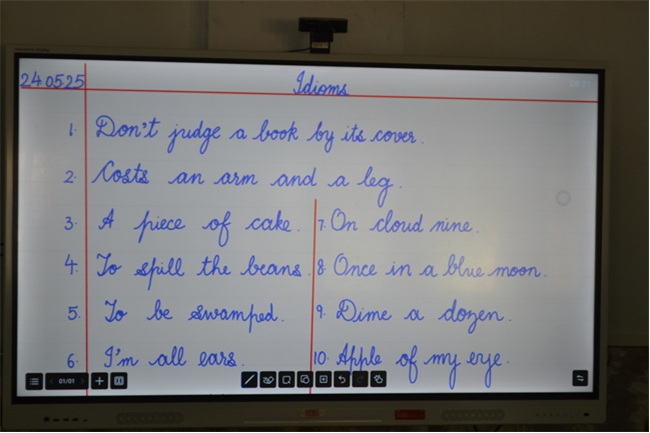 24.05.25
Idioms
1. Don't judge a book by its cover.
2. Costs an arm and a leg.
3. A piece of cake.
4. To spill the beans.
5. To be swamped.
6. I'm all ears.
7. On cloud nine.
8. Once in a blue moon.
9. Dime a dozen.
10. Apple of my eye.
01/01